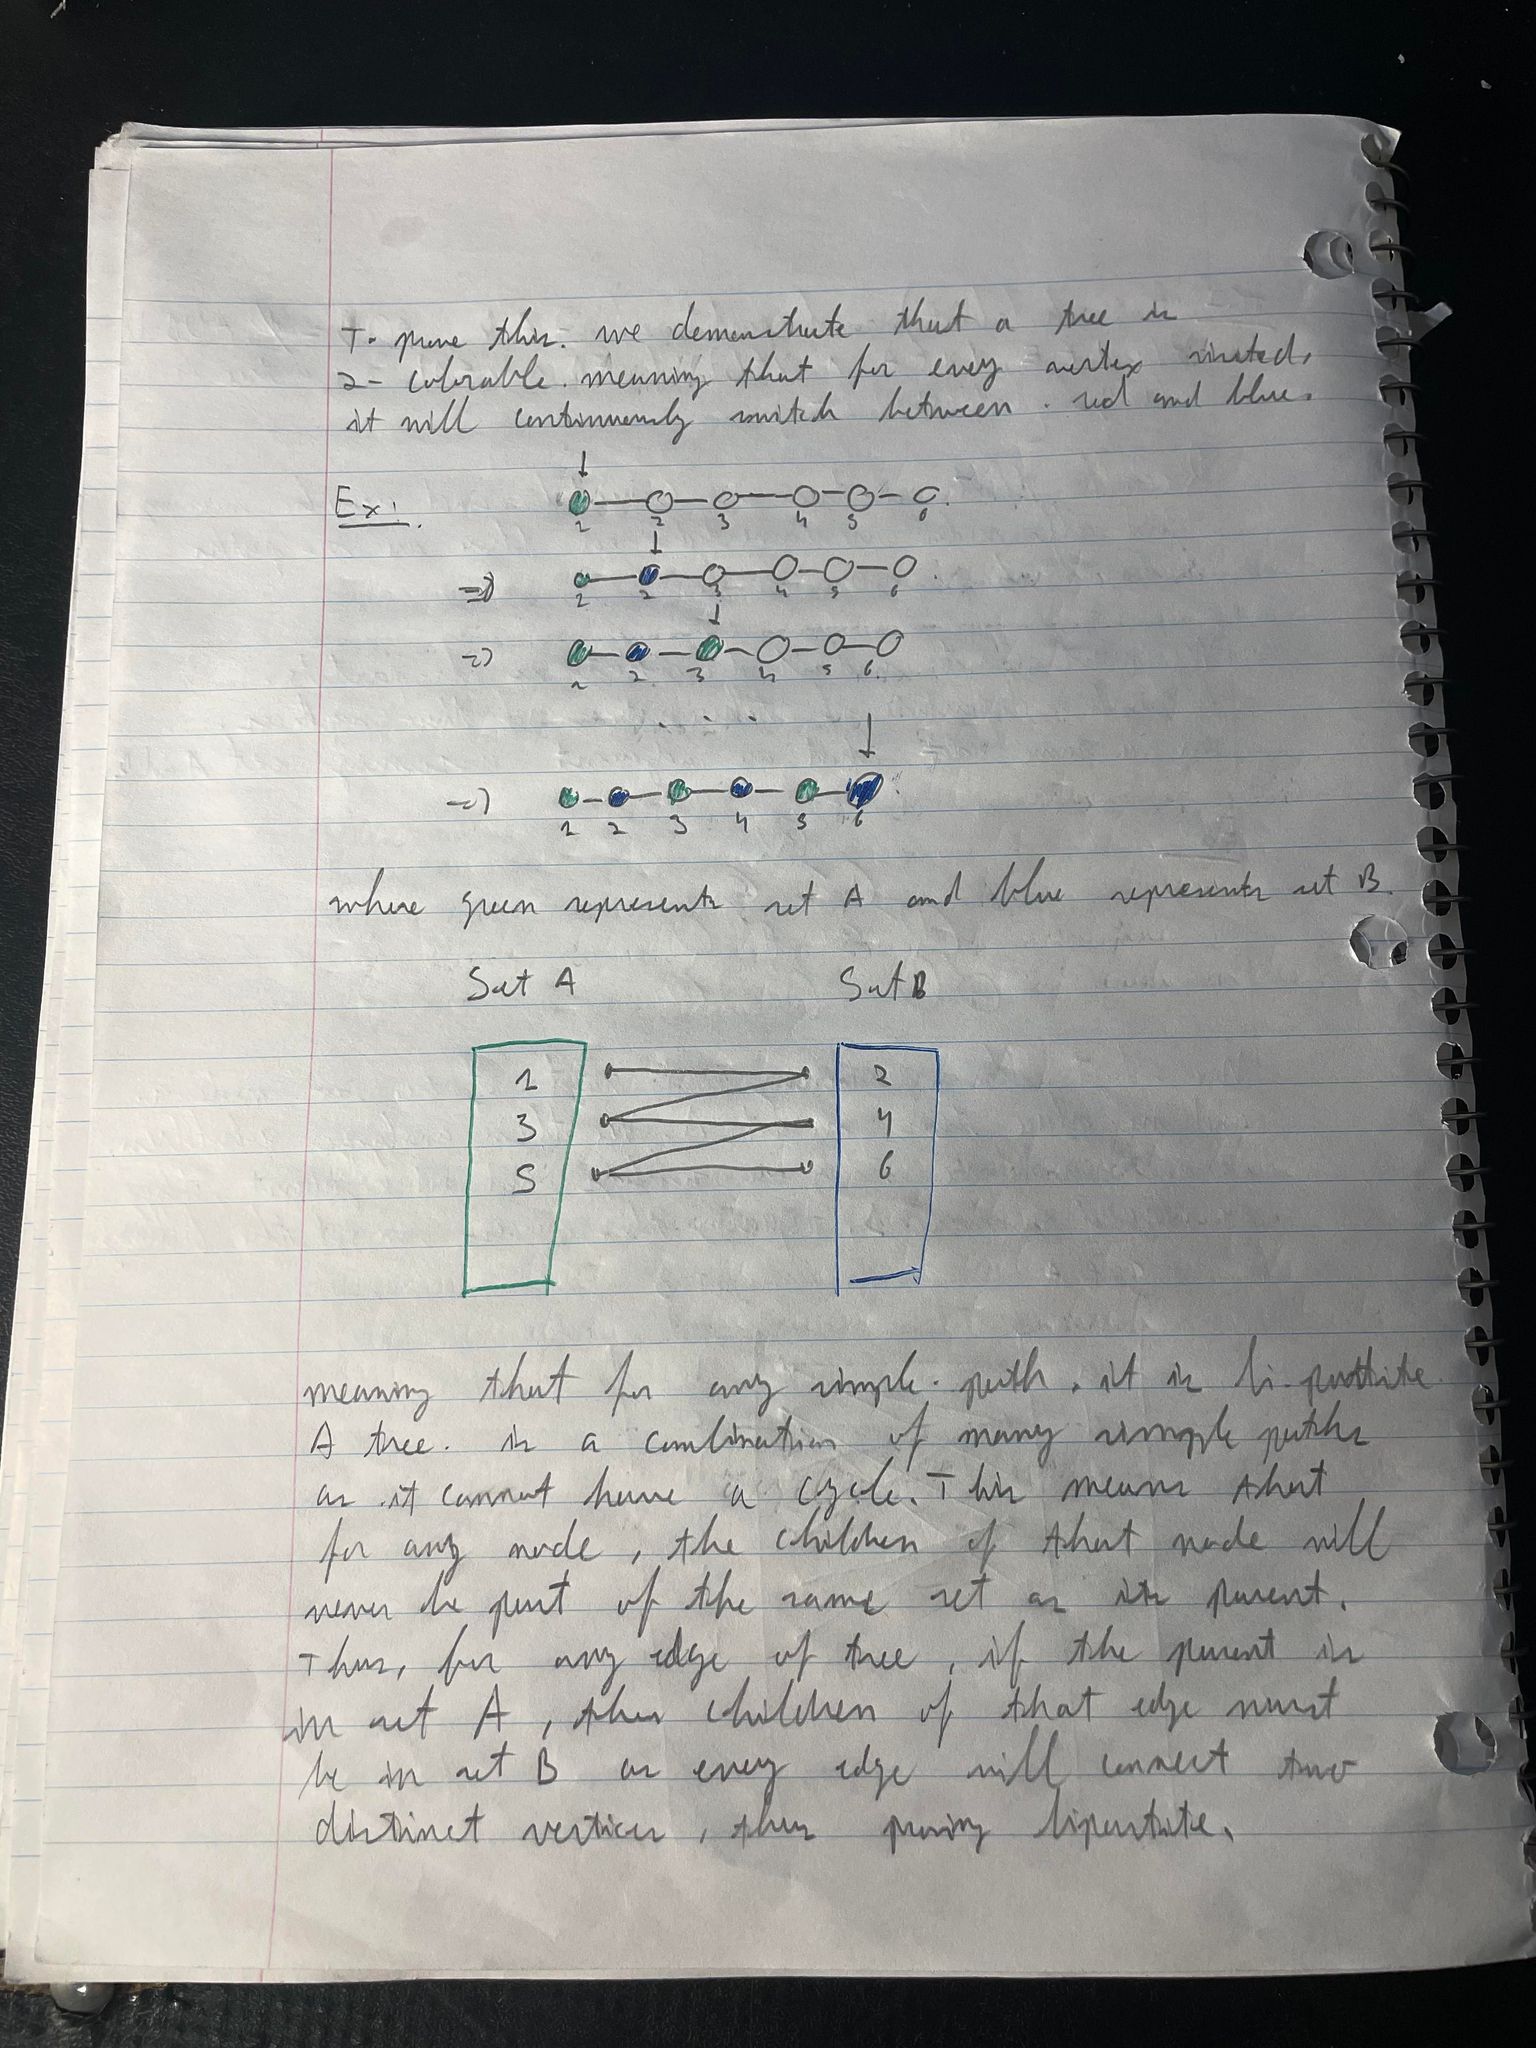 To prove this. we demonstrate that a tree is
2-colorable. meaning that for every vertex visited,
it will continuously switch between. red and blue.
Ex:
1 2 3 4 5 6
=> 1 2 3 4 5 6
=> 1 2 3 4 5 6
. . . .
=> 1 2 3 4 5 6
where green represents set A and blue represents set B.
Set A Set B
1 2
3 4
5 6
meaning that for any simple. path, it is bi-partite
A tree. is a combination of many simple paths
as it cannot have a cycle. This means that
for any node, the children of that node will
never be part of the same set as its parent.
Thus, for any edge of tree, if the parent is
in set A, then children of that edge must
be in set B as every edge will connect two
distinct vertices, thus proving bipartite.